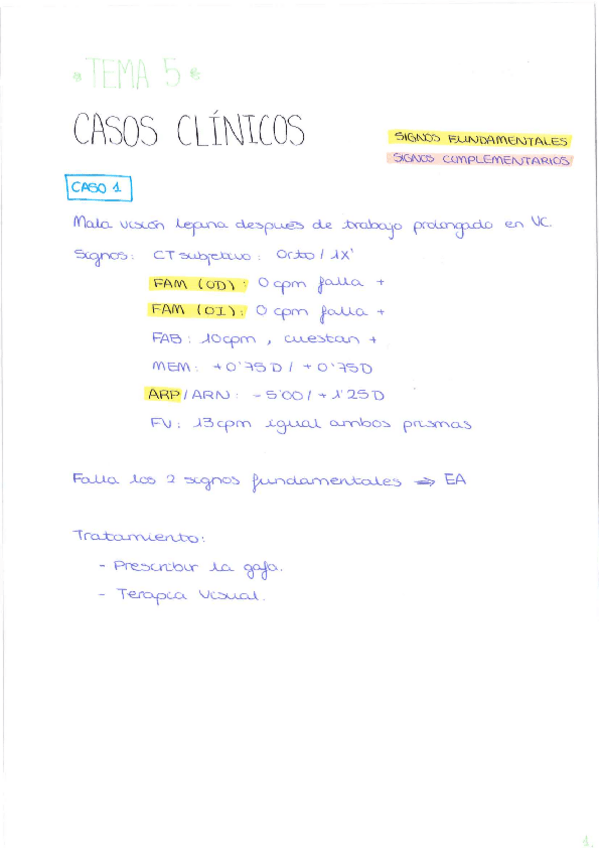 *TEMA 5*
CASOS CLÍNICOS
SIGNOS FUNDAMENTALES
SIGNOS COMPLEMENTARIOS
CASO 1
Mala visión lejana después de trabajo prolongado en VC.
Signos: CT subjetivo: Orto / 1X'
FAM (OD): 0 cpm falla +
FAM (OI): 0 cpm falla +
FAB: 10cpm, cuestan +
MEM: +0'75D / +0'75D
ARP/ARN: -5'00 / +1'25D
FV: 13cpm igual ambos prismas
Falla los 2 signos fundamentales ⇒ EA
Tratamiento:
- Prescribir la gafa.
- Terapia visual.
1.